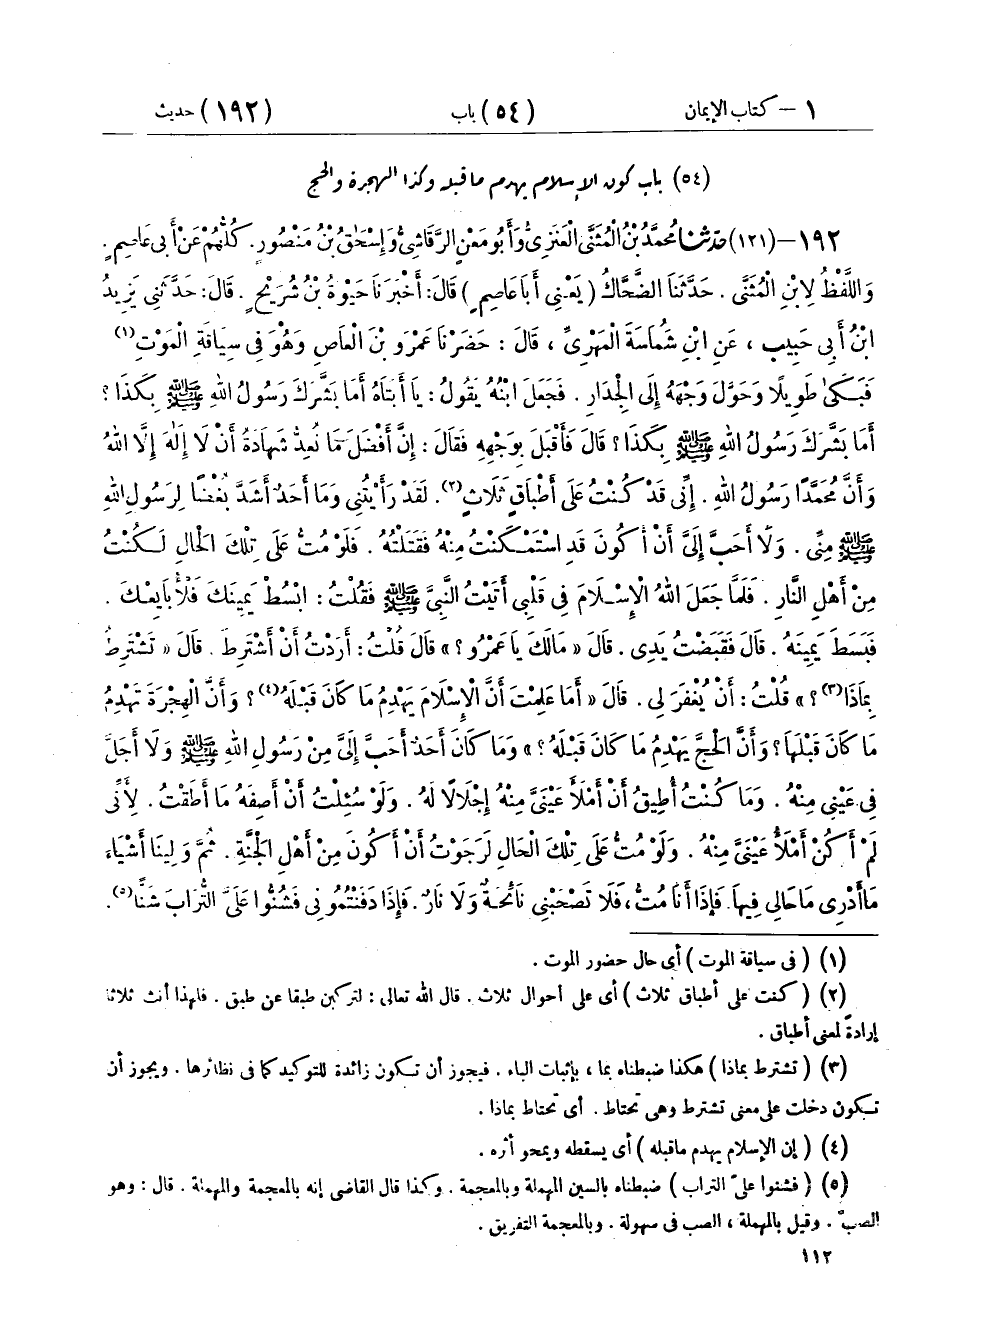 ١ – كتاب الإيمان (٥٤) باب (١٩٢) حديث
(٥٤) باب كون الإسلام يهدم ما قبله وكذا الهجرة والحج
١٩٢–(١٢١) حَدَّثَنَا مُحَمَّدُ بْنُ الْمُثَنَّى الْعَنَزِىُّ وَأَبُو مَعْنٍ الرَّقَاشِىُّ وَإِسْحَاقُ بْنُ مَنْصُورٍ. كُلُّهُمْ عَنْ أَبِى عَاصِمٍ.
وَاللَّفْظُ لِابْنِ الْمُثَنَّى. حَدَّثَنَا الضَّحَّاكُ (يَعْنِى أَبَا عَاصِمٍ) قَالَ: أَخْبَرَنَا حَيْوَةُ بْنُ شُرَيْحٍ. قَالَ: حَدَّثَنِى يَزِيدُ
ابْنُ أَبِى حَبِيبٍ، عَنِ ابْنِ شُمَاسَةَ الْمَهْرِىِّ، قَالَ: حَضَرْنَا عَمْرَو بْنَ الْعَاصِ وَهُوَ فِى سِيَاقَةِ الْمَوْتِ(١)
فَبَكَىٰ طَوِيلًا وَحَوَّلَ وَجْهَهُ إِلَى الْجِدَارِ. فَجَعَلَ ابْنُهُ يَقُولُ: يَا أَبَتَاهُ أَمَا بَشَّرَكَ رَسُولُ اللهِ ﷺ بِكَذَا؟
أَمَا بَشَّرَكَ رَسُولُ اللهِ ﷺ بِكَذَا؟ قَالَ فَأَقْبَلَ بِوَجْهِهِ فَقَالَ: إِنَّ أَفْضَلَ مَا نُعِدُّ شَهَادَةُ أَنْ لَا إِلَٰهَ إِلَّا اللهُ
وَأَنَّ مُحَمَّدًا رَسُولُ اللهِ. إِنِّى قَدْ كُنْتُ عَلَى أَطْبَاقٍ ثَلَاثٍ(٢). لَقَدْ رَأَيْتُنِى وَمَا أَحَدٌ أَشَدَّ بُغْضًا لِرَسُولِ اللهِ
ﷺ مِنِّى. وَلَا أَحَبَّ إِلَىَّ أَنْ أَكُونَ قَدِ اسْتَمْكَنْتُ مِنْهُ فَقَتَلْتُهُ. فَلَوْ مُتُّ عَلَى تِلْكَ الْحَالِ لَكُنْتُ
مِنْ أَهْلِ النَّارِ. فَلَمَّا جَعَلَ اللهُ الْإِسْلَامَ فِى قَلْبِى أَتَيْتُ النَّبِىَّ ﷺ فَقُلْتُ: ابْسُطْ يَمِينَكَ فَلْأُبَايِعْكَ.
فَبَسَطَ يَمِينَهُ. قَالَ فَقَبَضْتُ يَدِى. قَالَ «مَالَكَ يَا عَمْرُو؟» قَالَ قُلْتُ: أَرَدْتُ أَنْ أَشْتَرِطَ. قَالَ «تَشْتَرِطُ
بِمَاذَا(٣)؟» قُلْتُ: أَنْ يُغْفَرَ لِى. قَالَ «أَمَا عَلِمْتَ أَنَّ الْإِسْلَامَ يَهْدِمُ مَا كَانَ قَبْلَهُ(٤)؟ وَأَنَّ الْهِجْرَةَ تَهْدِمُ
مَا كَانَ قَبْلَهَا؟ وَأَنَّ الْحَجَّ يَهْدِمُ مَا كَانَ قَبْلَهُ؟» وَمَا كَانَ أَحَدٌ أَحَبَّ إِلَىَّ مِنْ رَسُولِ اللهِ ﷺ وَلَا أَجَلَّ
فِى عَيْنِى مِنْهُ. وَمَا كُنْتُ أُطِيقُ أَنْ أَمْلَأَ عَيْنَىَّ مِنْهُ إِجْلَالًا لَهُ. وَلَوْ سُئِلْتُ أَنْ أَصِفَهُ مَا أَطَقْتُ. لِأَنِّى
لَمْ أَكُنْ أَمْلَأُ عَيْنَىَّ مِنْهُ. وَلَوْ مُتُّ عَلَى تِلْكَ الْحَالِ لَرَجَوْتُ أَنْ أَكُونَ مِنْ أَهْلِ الْجَنَّةِ. ثُمَّ وَلِينَا أَشْيَاءَ
مَا أَدْرِى مَا حَالِى فِيهَا. فَإِذَا أَنَا مُتُّ، فَلَا تَصْحَبْنِى نَائِحَةٌ وَلَا نَارٌ. فَإِذَا دَفَنْتُمُونِى فَشُنُّوا عَلَىَّ التُّرَابَ شَنًّا(٥).
(١) (فى سياقة الموت) أى حال حضور الموت.
(٢) (كنت على أطباق ثلاث) أى على أحوال ثلاث. قال الله تعالى: لتركبن طبقا عن طبق. فلهذا أنث ثلاثا
إرادةً لمعنى أطباق.
(٣) (تشترط بماذا) هكذا ضبطناه بما، بإثبات الباء. فيجوز أن تكون زائدة للتوكيد كما فى نظائرها. ويجوز أن
تكون دخلت على معنى تشترط وهى تحتاط. أى تحتاط بماذا.
(٤) (إن الإسلام يهدم ماقبله) أى يسقطه ويمحو أثره.
(٥) (فشنوا علىّ التراب) ضبطناه بالسين المهملة وبالمعجمة. وكذا قال القاضى إنه بالمعجمة والمهملة. قال: وهو
الصبّ. وقيل بالمهملة، الصب فى سهولة. وبالمعجمة التفريق.
١١٢